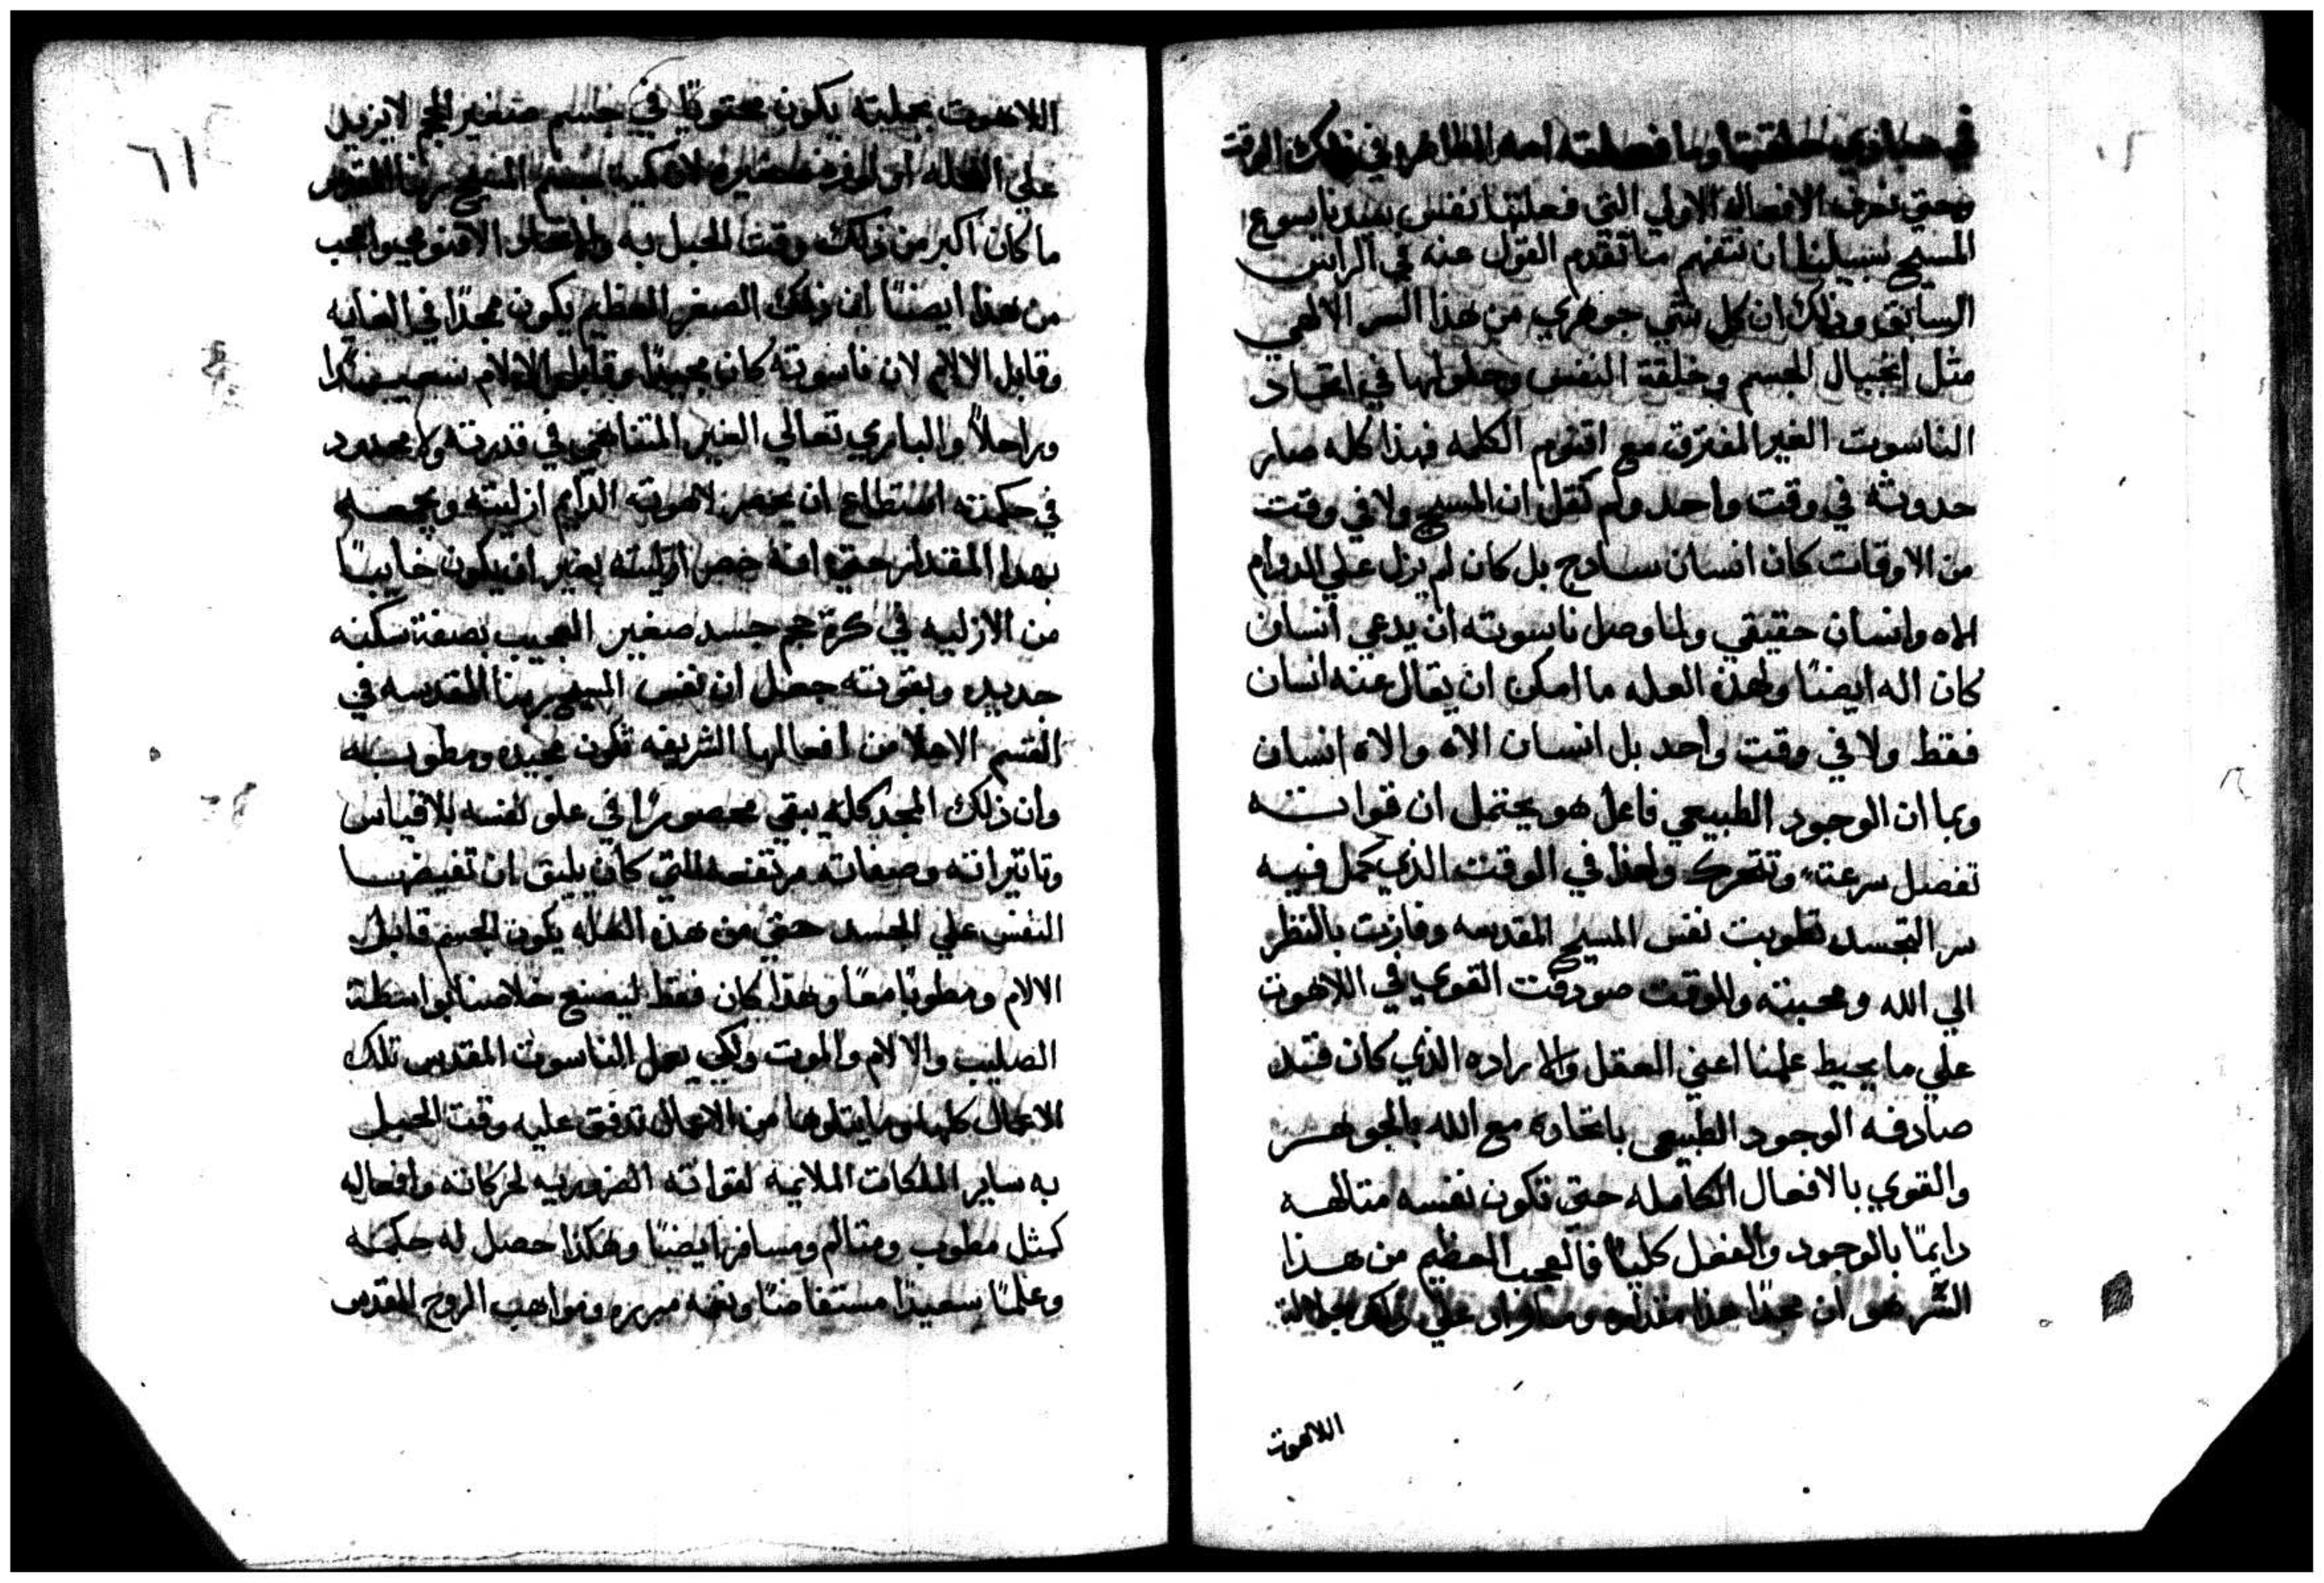 في مبادي خلقتها وما فعلته امه الطاهره في ذلك الوقت
وحتي نعرف الافعال الاولي التي فعلتها نفس سيدنا يسوع
المسيح سبيلنا ان نتفهم ما تقدم القول عنه في الراس
السابق وذلك ان كل شي جوهري من هذا السر الالهي
مثل انجبال الجسم وخلقة النفس وحلولها في اتحاد
الناسوت الغير المفترق مع اقنوم الكلمه فهذا كله صار
حدوثه في وقت واحد ولم نقل ان المسيح ولا في وقت
من الاوقات كان انسان سادج بل كان لم يزل علي الدوام
الاه وانسان حقيقي ولما وصل ناسوته ان يدعي انسان
كان اله ايضًا ولهذه العله ما امكن ان يقال عنه انسان
فقط ولا في وقت واحد بل انسان الاه والاه انسان
وبما ان الوجود الطبيعي فاعل هو يحتمل ان قواته
تفصل سرعتة وتتحرك ولهذا في الوقت الذي كمل فيه
سر التجسد تطوبت نفس المسيح المقدسه وفازت بالنظر
الي الله ومحبته والوقت صودفت القوي في اللاهوت
علي ما يحيط علمنا اعني العقل والاراده الذي كان قد
صادفه الوجود الطبيعي باتحاده مع الله بالجوهر
والقوي بالافعال الكامله حتي تكون نفسه متالهه
دايمًا بالوجود والفعل كليًا فالعجب العظيم من هذا
السر هو ان مجدًا هذا مقداره علي ذلك بجلالة
اللاهوت
٦١
اللاهوت بجملته يكون محتويًا في جسم صغير الحجم لا يزيد
علي النحله او لوزه صغيره لان كمية جسم المسيح ربنا
ما كان اكبر من ذلك وقت الحبل به والاتحاد الاقنومي واعجب
من هذا ايضًا ان ذلك الصغر العظيم يكون مجدًا في الغايه
وقابل الالام لان ناسوته كان مجيدًا وقابل الالام سعيدًا
وراحلاً والباري تعالي الغير المتناهي في قدرته ولا محدود
في حكمته استطاع ان يحصر لاهوته الدايم ازليته ويجمعه
بهذا المقدار حتي انه حصر ازليته بغير ان يكون خايبًا
من الازليه في كرة حجم جسد صغير العجيب بصفة سكنه
جديده وبقوته جعل ان نفس المسيح ربنا المقدسه في
القسم الاعلا من افعالها الشريفه تكون مجيده ومطوبه
وان ذلك المجد كله يبقي محصورًا في علو نفسه بلا قياس
وتاتيراته وصفاته مرتفعه التي كان يليق ان تفيضها
النفس علي الجسد حتي من هذه العله يكون الجسم قابل
الالام ومطوبًا معًا وهذا كان فقط ليصنع خلاصنا بواسطة
الصليب والالام والموت ولكي يعمل الناسوت المقدس تلك
الاعمال كلها وما يتلوها من الاعمال تدفق عليه وقت الحبل
به ساير الملكات الملايمة لقواته الضروريه لحركاته وافعاله
كمثل مطوب ومتالم ومسافر ايضًا وهكذا حصل له حكمه
وعلمًا سعيدًا مستفاضًا ونعمه مبرره ومواهب الروح المقدس